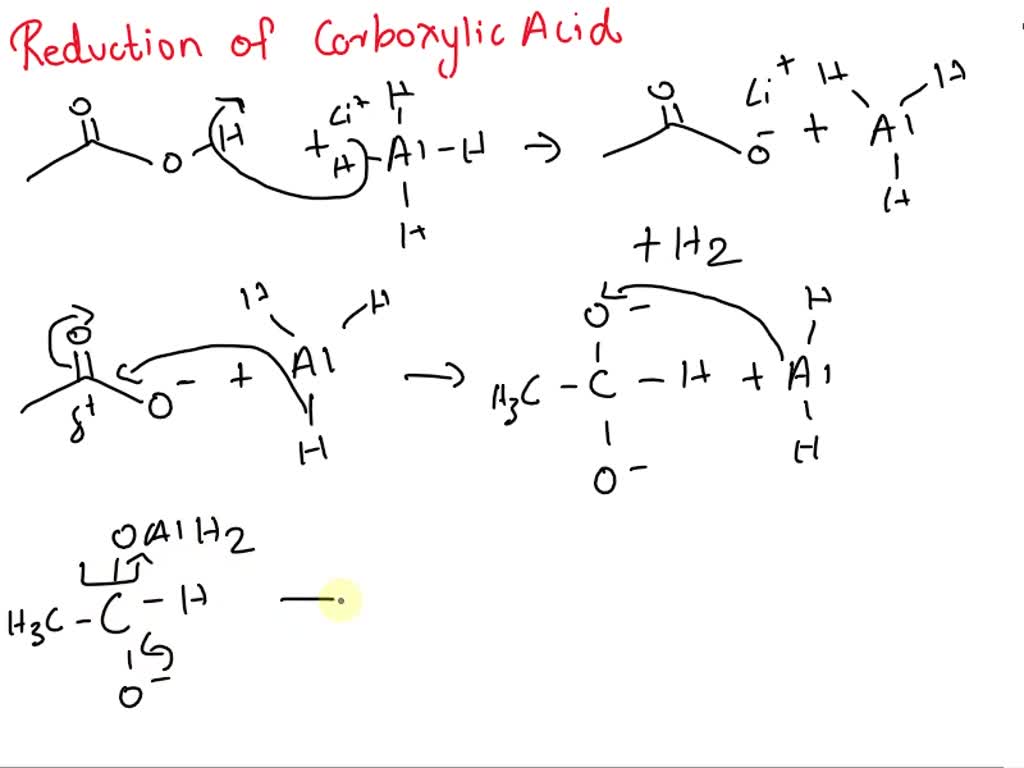 Reduction of Carboxylic Acid
O
O
H
+
Li+
H
H
Al
-H
H
→
O
O-
Li+
+
H
H
Al
H
+ H2
O
δ+
O-
+
H
H
Al
H
→
O-
H3C - C - H
O-
+
H
Al
H
OAlH2
H3C - C - H
O-